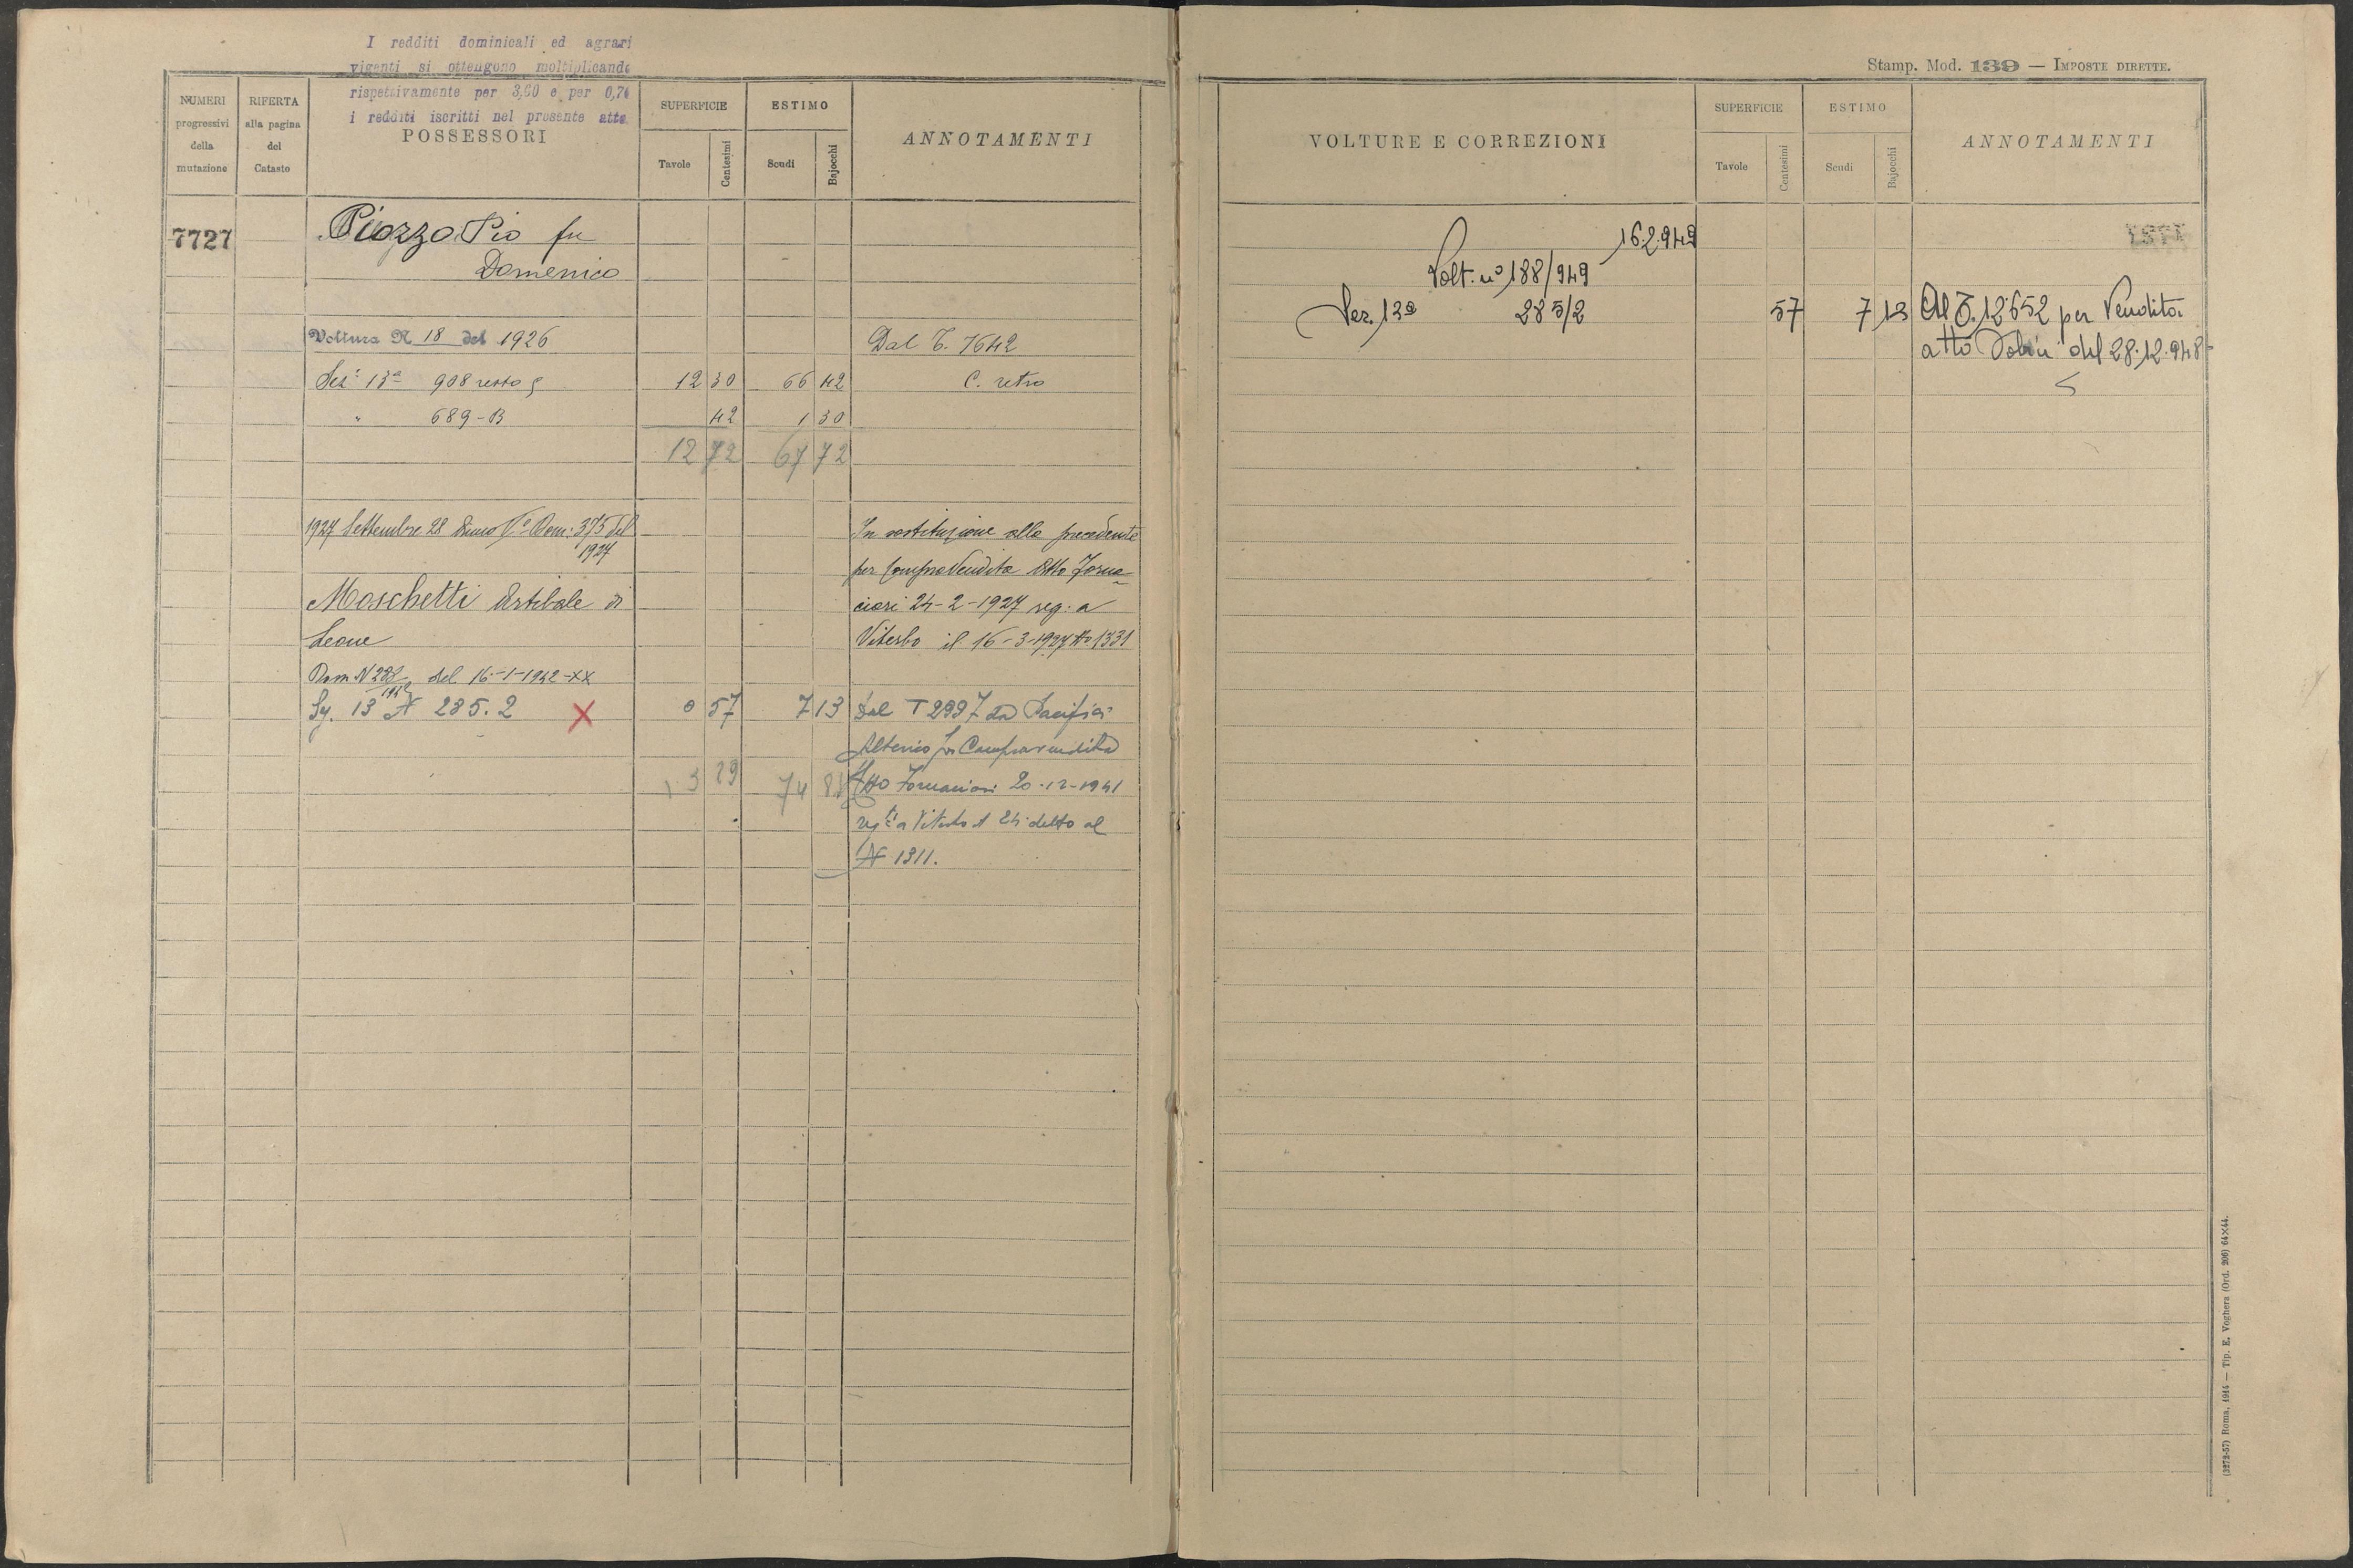 I redditi dominicali ed agrari
vigenti si ottengono moltiplicando
rispettivamente per 3,60 e per 0,76
i redditi iscritti nel presente atto
NUMERI
progressivi
della
mutazione
RIFERTA
alla pagina
del
Catasto
POSSESSORI
SUPERFICIE
Tavole
Centesimi
ESTIMO
Scudi
Bajocchi
ANNOTAMENTI
7727
Piozzo Pio fu
Domenico
Voltura N 18 del 1926
Dal T. 7642
Sez: 13a 908 resto 12 30 66 42 C. retro
" 689-B 42 1 30
12 72 67 72
1927 Settembre 28 375 del
1927
In sostituzione alla precedente
per Compravendita Atto Forna-
ciari 24-2-1927 reg. a
Viterbo il 16-3-1927 No 1331
Moschetti Artibale di
Leone
Dom N 228 del 16-1-1942-XX
1942
Sez. 13 N 285.2 X 0 57 7 13 Dal T 2997 da Pacifici
Alterico per Compravendita
13 29 74 85 Atto Fornaciari 20-12-1941
a Viterbo il 24 detto al
N 1311.
Stamp. Mod. 139 — IMPOSTE DIRETTE.
VOLTURE E CORREZIONI
SUPERFICIE
Tavole
Centesimi
ESTIMO
Scudi
Bajocchi
ANNOTAMENTI
16.2.949
Volt. n° 188/949
Sez. 13a 285/2 57 7 13 Al T. 12652 per Vendita
atto del 28.12.948
(3272-57) Roma, 1914 — Tip. E. Voghera (Ord. 206) 64×44.